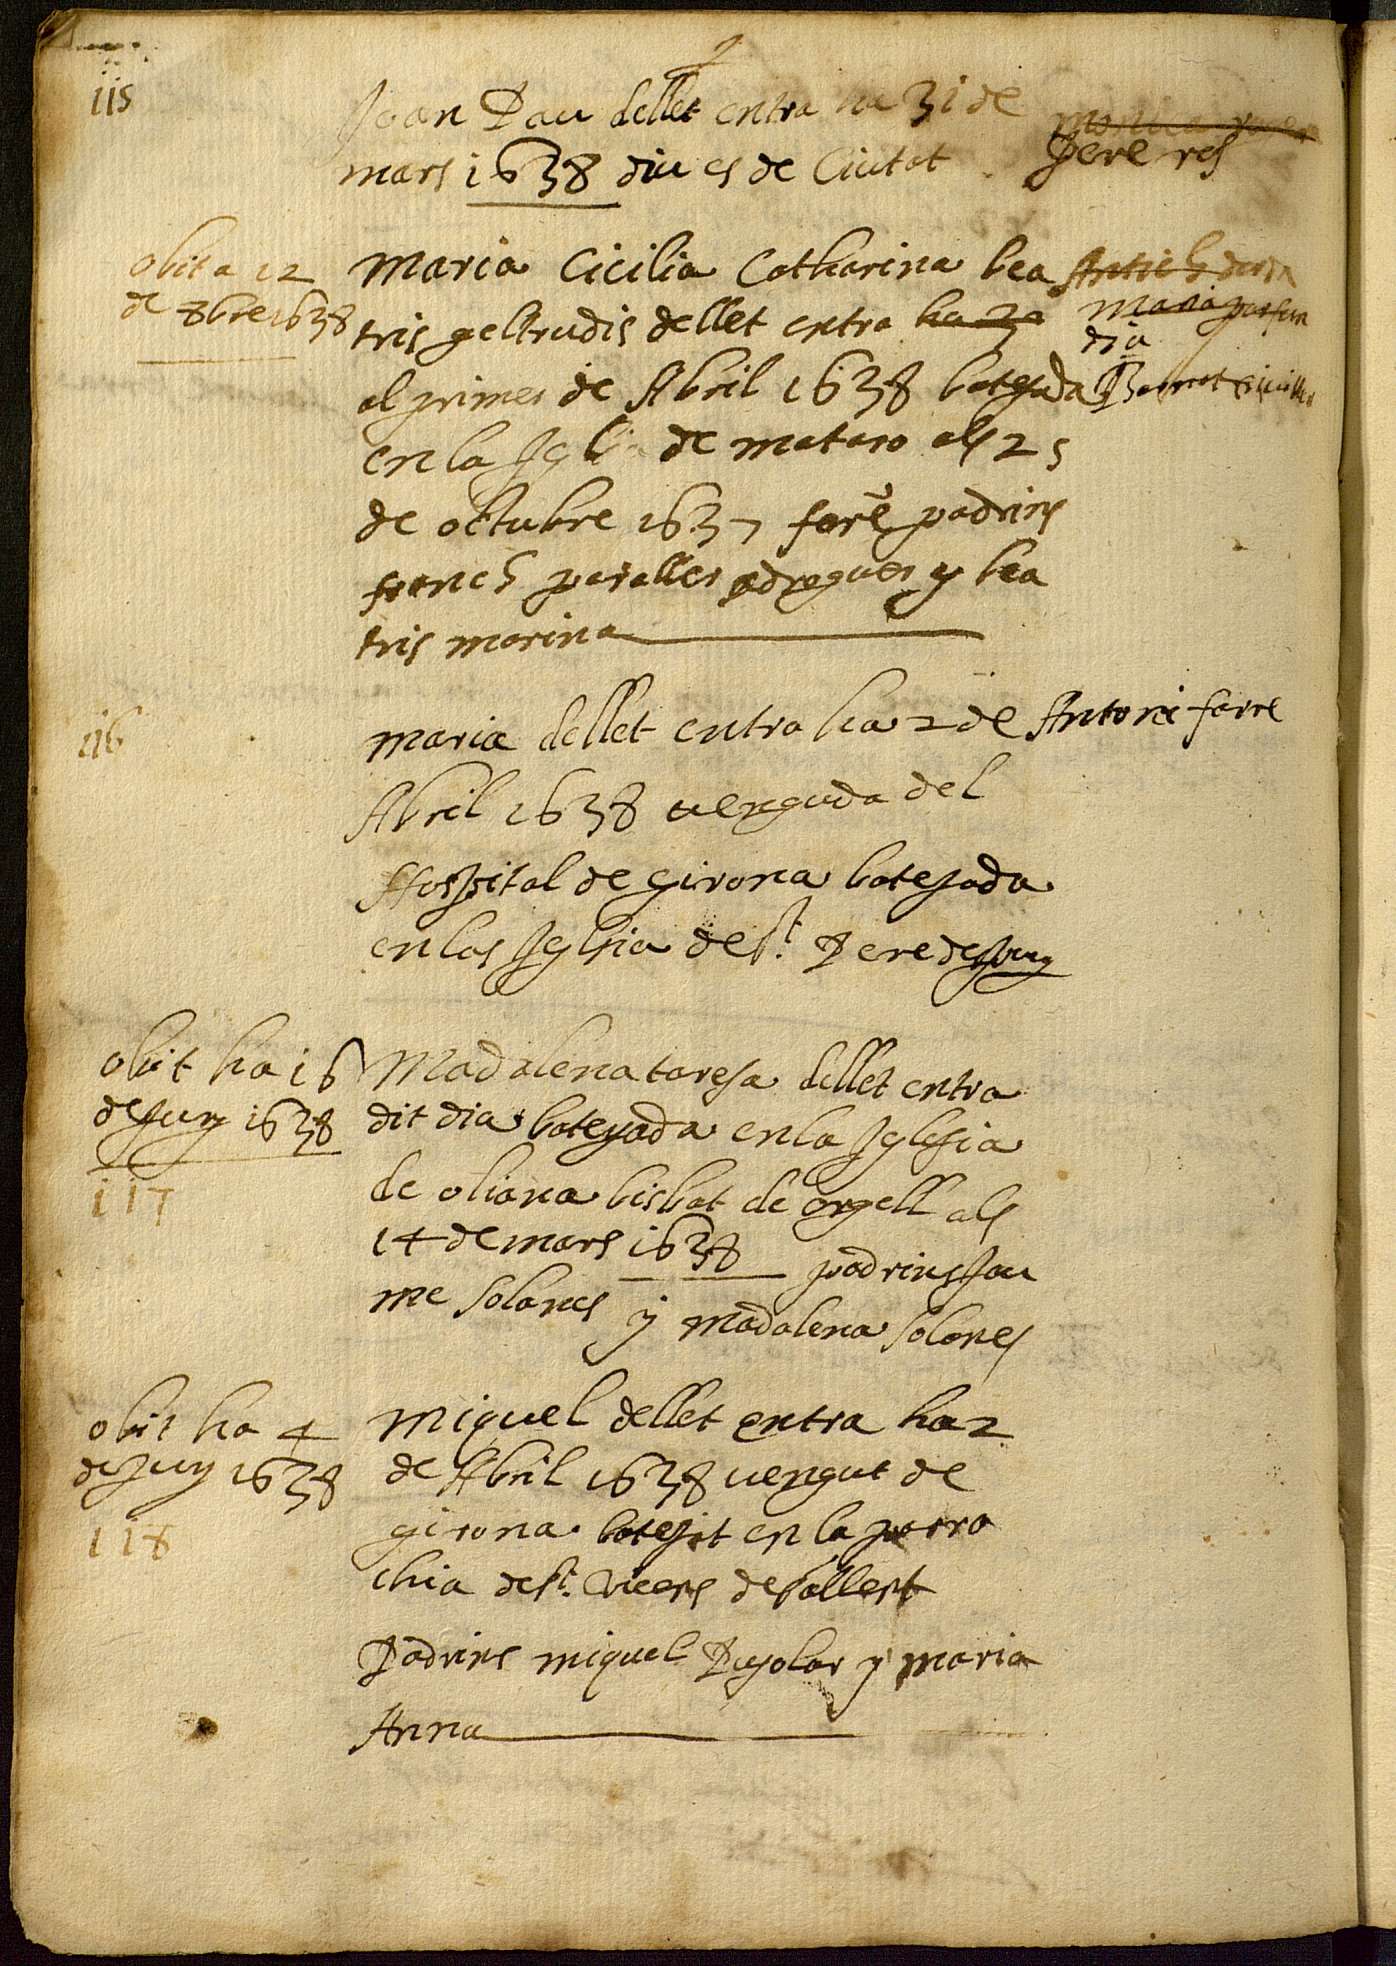 115
Joan Pau dellet entra ha 31 de
mars 1638 diu es de Ciutat
Pere res
obit a 12
de 8bre 1638
Maria Cicilia Catharina bea
tris geltrudis dellet entra ha 30
al primer de Abril 1638 bategada
en la Iglia de mataro als 25
de octubre 1637 forē padrins
franch paralles adroguer y bea
tris marina
Maria
dia
116
maria dellet entra ha 2 de
Abril 1638 uenguda del
Hospital de girona batejada
en las Iglsia de st. Pere des puig
Antoni farre
obit ha 16
de juny 1638
117
Madalena taresa dellet entra
dit dia bateyada en la Iglesia
de oliana bisbat de orgell als
14 de mars 1638 padrins Jau
me Solanes y madalena Solanes
obit ha 4
de juny 1638
118
Miquel dellet entra ha 2
de Abril 1638 uengut de
girona batejat en la parro
chia de st. Vicens de sallent
Padrins miquel Pujolar y maria
Anna